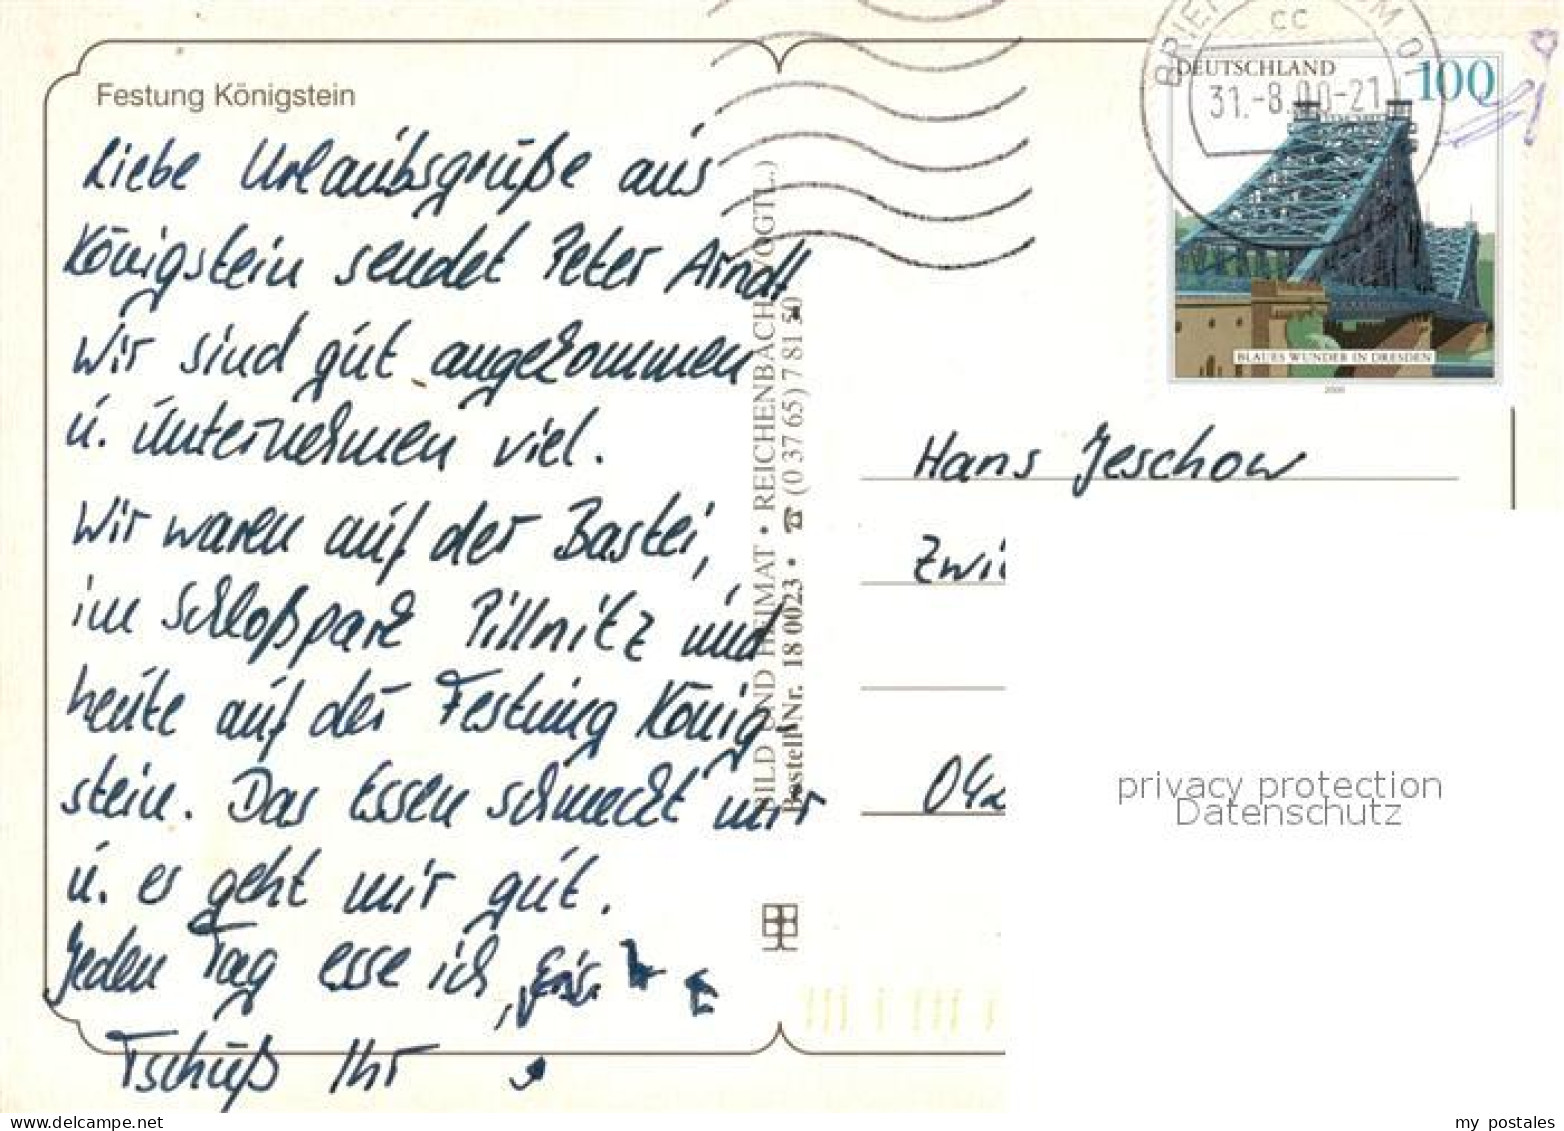 Festung Königstein
Liebe Urlaubsgrüße aus
Königstein sendet Peter Arndt
Wir sind gut angekommen
u. unternehmen viel.
Wir waren auf der Bastei,
im Schloßpark Pillnitz und
heute auf der Festung König-
stein. Das Essen schmeckt mir
u. es geht mir gut.
Jeden Tag esse ich Eis.
Tschüß Ihr
BILD UND HEIMAT • REICHENBACH (VOGTL.)
Bestell-Nr. 18 0023 • ☎ (0 37 65) 7 81 50
CC
31.-8.00-21
DEUTSCHLAND
100
BLAUES WUNDER IN DRESDEN
2000
Hans Jeschow
Zwi
04
privacy protection
Datenschutz
www.delcampe.net
my postales